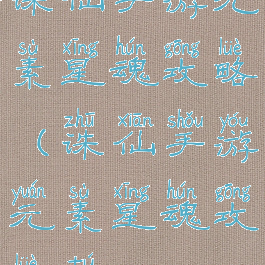 诛仙手游元
sù xīng hún gōng lüè
素星魂攻略
zhū xiān shǒu yóu
(诛仙手游
yuán sù xīng hún gōng
元素星魂攻